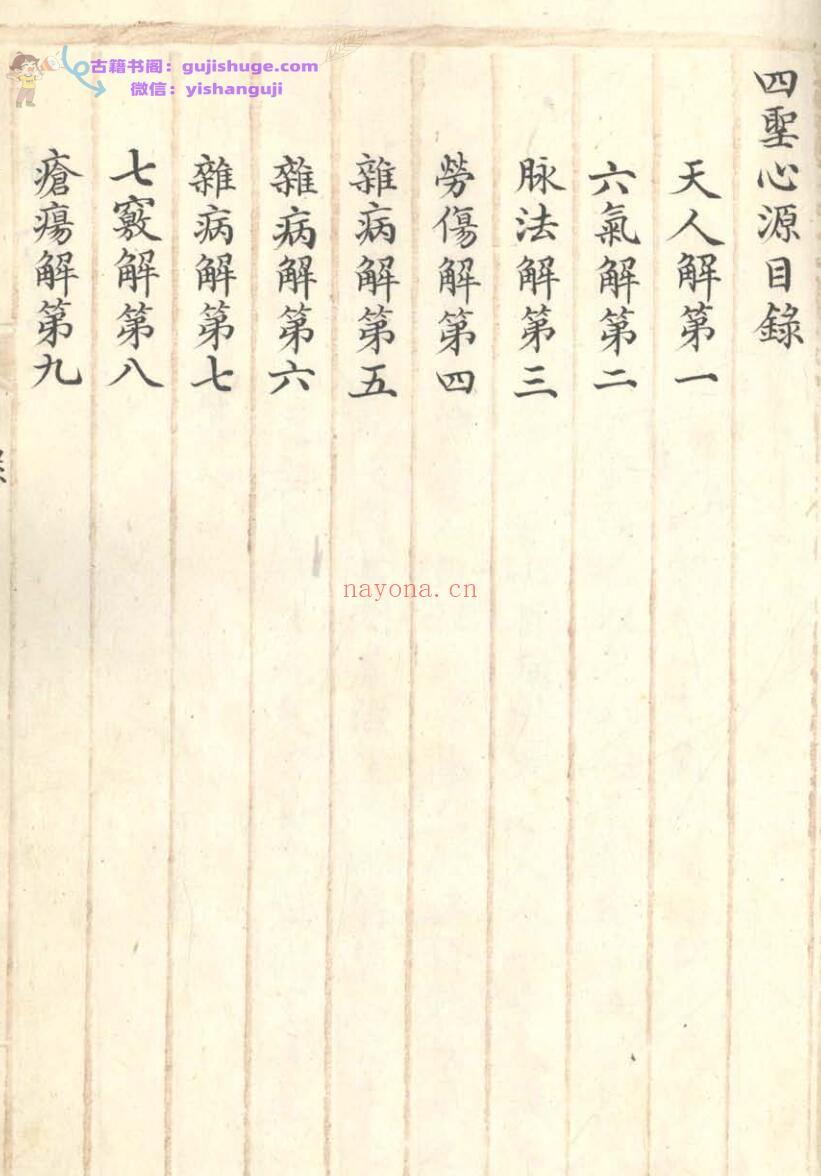 古籍书阁：gujishuge.com
微信：yishanguji
四聖心源目錄
天人解第一
六氣解第二
脉法解第三
勞傷解第四
雜病解第五
雜病解第六
雜病解第七
七竅解第八
瘡瘍解第九
nayona.cn